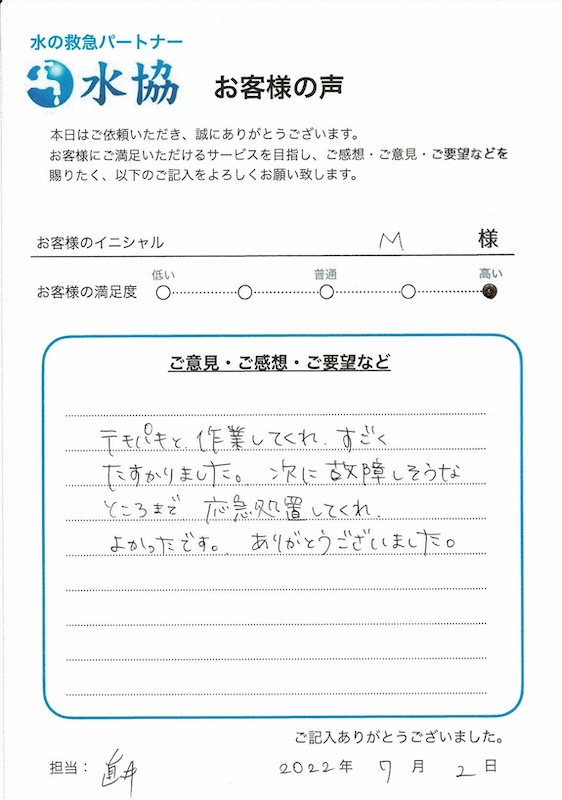 水の救急パートナー
水協 お客様の声
本日はご依頼いただき、誠にありがとうございます。
お客様にご満足いただけるサービスを目指し、ご感想・ご意見・ご要望などを
賜りたく、以下のご記入をよろしくお願い致します。
お客様のイニシャル M 様
低い 普通 高い
お客様の満足度
ご意見・ご感想・ご要望など
テキパキと、作業してくれ、すごく
たすかりました。次に故障しそうな
ところまで 応急処置してくれ、
よかったです。ありがとうございました。
ご記入ありがとうございました。
担当：
2022年 7月 2日